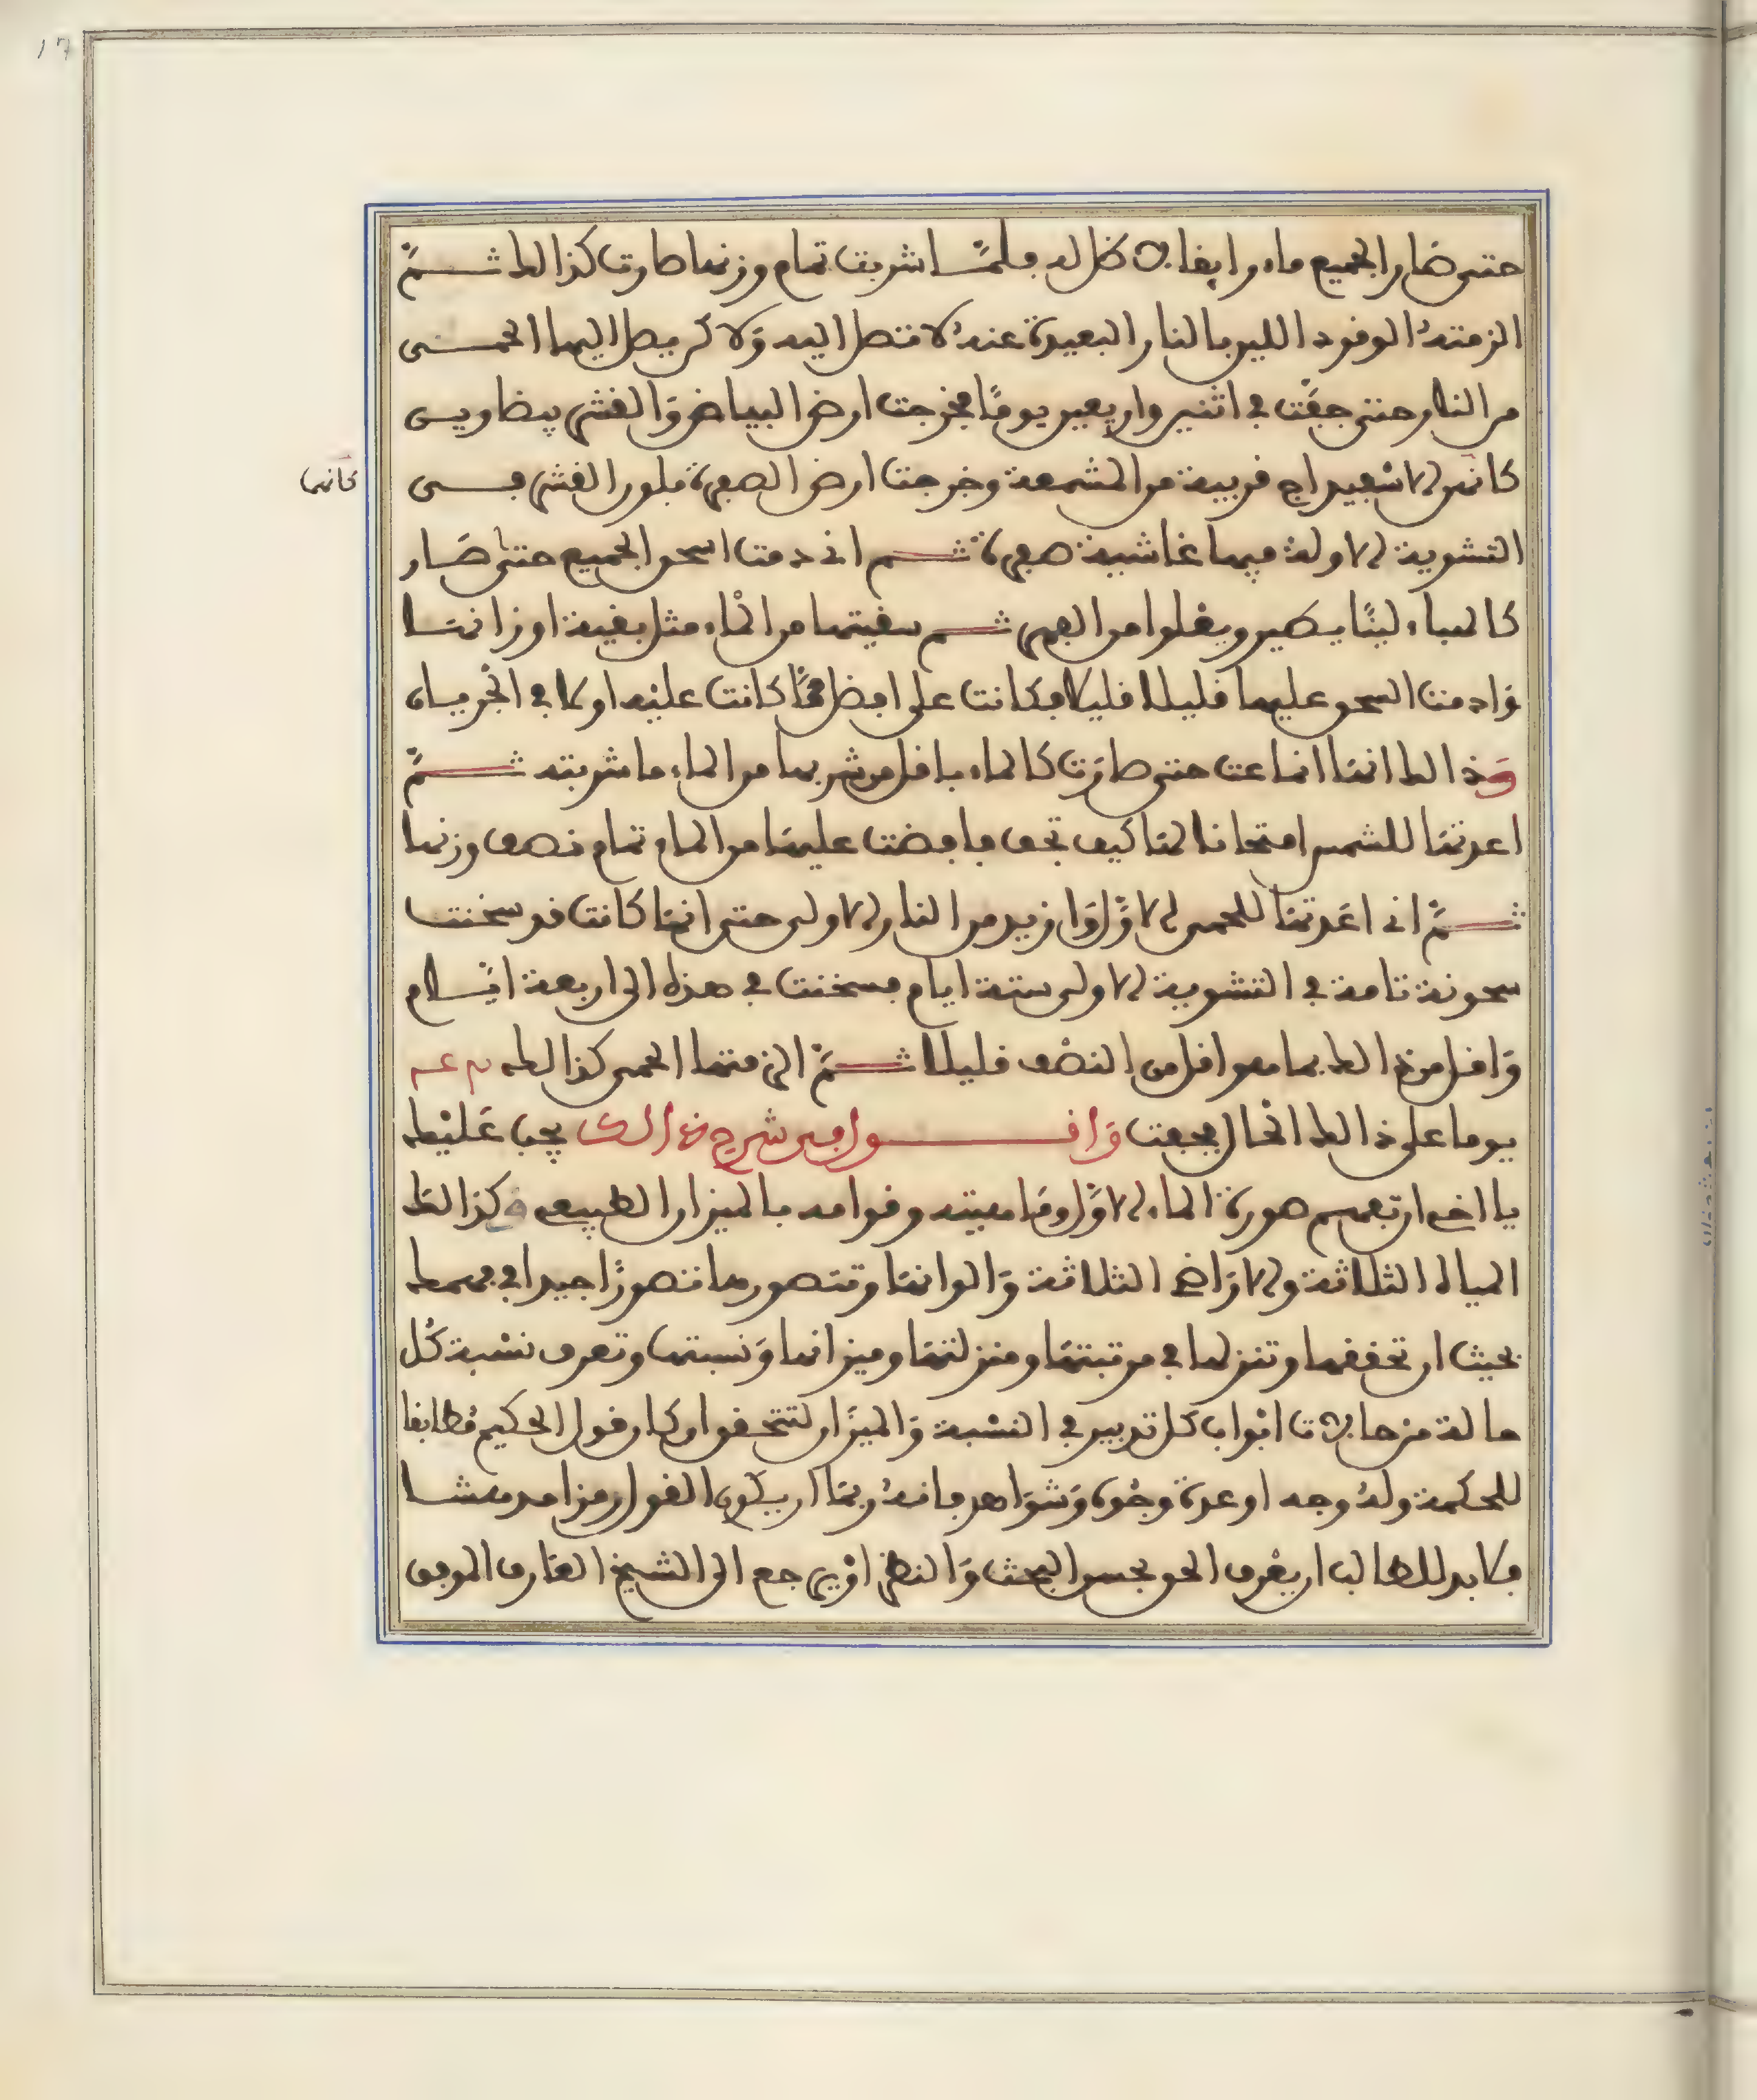 حتى صار الجميع ماء رايقا لا ظل له فلمّا شربت تمام وزنها صارت كذالك ثمّ
الزمته الوقود اللين بالنار البعيدة عنه لا تتصل اليه ولاكن يصل اليها الحمى
من النار حتى جفّت في اثنين واربعين يومًا فخرجت ارض البياض والقشر بيضاوين
كانهن الاسفيداج قريبة من المشمعة وخرجت ارض الصفرة بلون القشر فى
كانها
التشوية الاولة فيها غاشية صفرة ثم انى دمت اسحق الجميع حتى صار
كالهباء لينًا يطير ويغلوا من الفهر ثم سقيتها من الماء مثل بقية اوزانها
وادمت السحق عليها قليلا قليلا فكانت على افضل ممّا كانت عليه اولا في الجريان
وذالك انها انماعت حتى صارت كالماء باقل من شربها من الماء ما شربته ثمّ
اعدتها للشمس امتحانا لها كيف تجف فافضت عليها من الماء تمام نصف وزنها
ثمّ انى اعدتها للحمى الاول وازيد من النار الاولى حتى انها كانت قد سخنت
سخونة تامة في التشوية الاولى ستة ايام فسخنت في هذه الى اربعة ايام
واقل من ذالك بما هو اقل من النصف قليلا ثمّ الزمتها الحمى كذالك
يوما على ذالك الحال فجفت واقول في شرح ذالك يجب عليك
يا اخى ان تفهم صورة الماء الاول وماهيته وقوامه بالميزان الطبيعى وكذالك
المياه الثلاثة والاراضى الثلاثة والوانها وتتصورها تصورًا جيدا في فهمك
بحيث ان تحققها وتنزلها في مرتبتها ومنزلتها وميزانها ونسبتها وتعرف نسبة كل
حالة من حالات ابواب كل تدبير في النسبة والميزان لتتحقق ان كان قول الحكيم مطابقا
للحكمة وله وجه او عدة وجوه وشواهد فانه ربما ان يكون القول رمزا مدهشا
فلا بد للطالب ان يعرف الحق بحسن البحث والنظر او يرجع الى الشيخ العارف الموفق